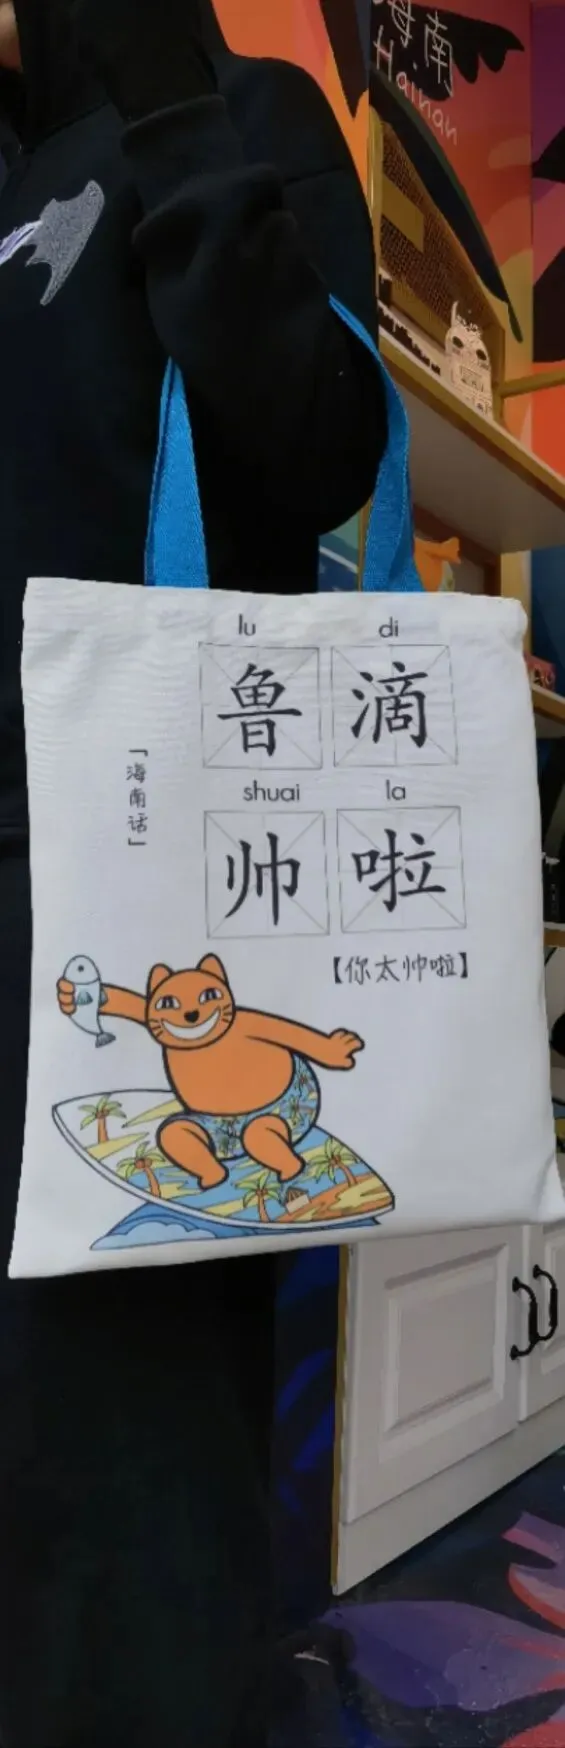 海南
Hainan
lu di
鲁滴
「海南话」
shuai la
帅啦
【你太帅啦】